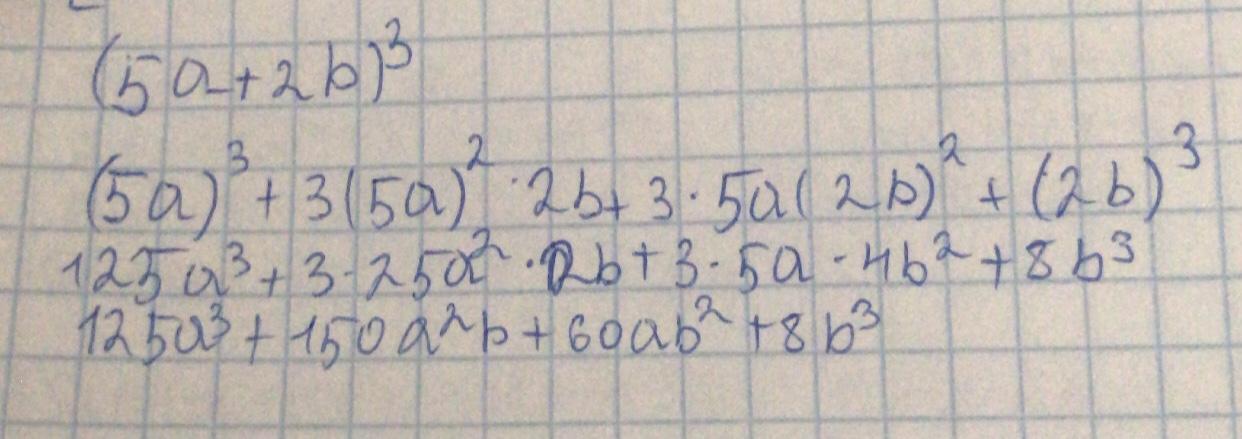 (5a+2b)³
(5a)³+3(5a)²·2b+3·5a(2b)²+(2b)³
125a³+3·25a²·2b+3·5a·4b²+8b³
125a³+150a²b+60ab²+8b³